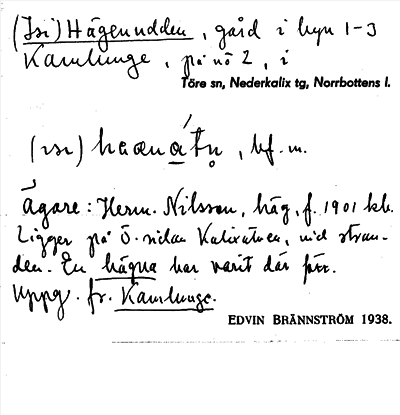 (Isi) Hägenudden, gård i byn 1-3
Kamlunge, på nö 2, i
Töre sn, Nederkalix tg, Norrbottens l.
bf. m.
Ägare: Herm. Nilsson, häg, f. 1901 kb.
Ligger på Ö. sidan Kalixälven, vid stran-
den. En hägna har varit där förr.
Uppg. fr. Kamlunge.
EDVIN BRÄNNSTRÖM 1938.